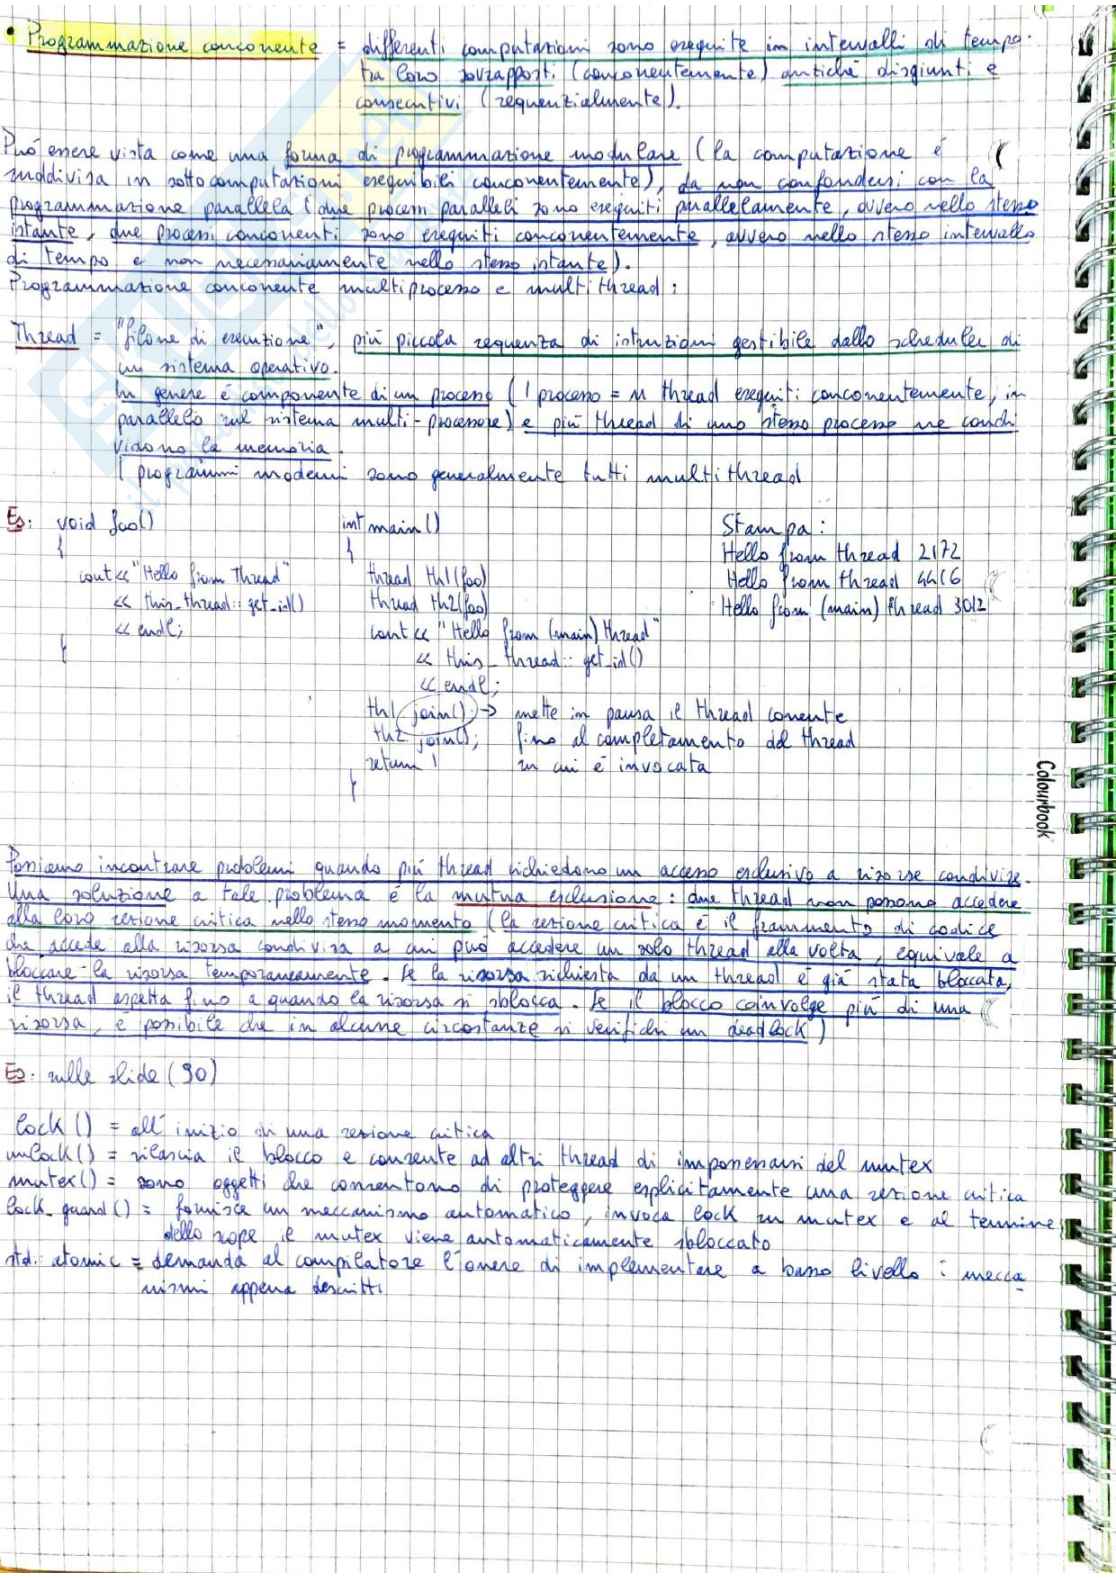 • Programmazione concorrente = differenti computazioni sono eseguite in intervalli di tempo
tra loro sovrapposti (concorrentemente) anziché disgiunti e
consecutivi (sequenzialmente).
Può essere vista come una forma di programmazione modulare (la computazione é
suddivisa in sottocomputazioni eseguibili concorrentemente), da non confondersi con la
programmazione parallela (due processi paralleli sono eseguiti parallelamente, ovvero nello stesso
istante, due processi concorrenti sono eseguiti concorrentemente, ovvero nello stesso intervallo
di tempo e non necessariamente nello stesso istante).
Programmazione concorrente multiprocesso e multithread:
Thread = "filone di esecuzione", più piccola sequenza di istruzioni gestibile dallo scheduler di
un sistema operativo.
In genere é componente di un processo (1 processo = M thread eseguiti concorrentemente, in
parallelo sul sistema multi-processore) e più thread di uno stesso processo ne condi
vidono la memoria.
I programmi moderni sono generalmente tutti multithread
Es: void foo() int main() Stampa:
{ { Hello from thread 2172
cout << "Hello from Thread" thread th1(foo) Hello from thread 4416
<< this_thread::get_id() thread th2(foo) Hello from (main) thread 3012
<< endl; cout << "Hello from (main) thread"
} << this_thread::get_id()
<< endl;
th1 join(); → mette in pausa il thread corrente
th2 join(); fino al completamento del thread
return 1 su cui é invocata
}
Colourbook
Possiamo incontrare problemi quando più thread richiedono un accesso esclusivo a risorse condivise.
Una soluzione a tale problema é la mutua esclusione: due thread non possono accedere
alla loro sezione critica nello stesso momento (la sezione critica é il frammento di codice
che accede alla risorsa condivisa a cui può accedere un solo thread alla volta, equivale a
bloccare la risorsa temporaneamente. Se la risorsa richiesta da un thread é già stata bloccata,
il thread aspetta fino a quando la risorsa si sblocca. Se il blocco coinvolge più di una
risorsa, é possibile che in alcune circostanze si verifichi un deadlock)
Es: sulle slide (90)
lock() = all'inizio di una sezione critica
unlock() = rilascia il blocco e consente ad altri thread di impossessarsi del mutex
mutex() = sono oggetti che consentono di proteggere esplicitamente una sezione critica
lock_guard() = fornisce un meccanismo automatico, invoca lock su mutex e al termine
dello scope il mutex viene automaticamente sbloccato
std::atomic = demanda al compilatore l'onere di implementare a basso livello i mecca
nismi appena descritti